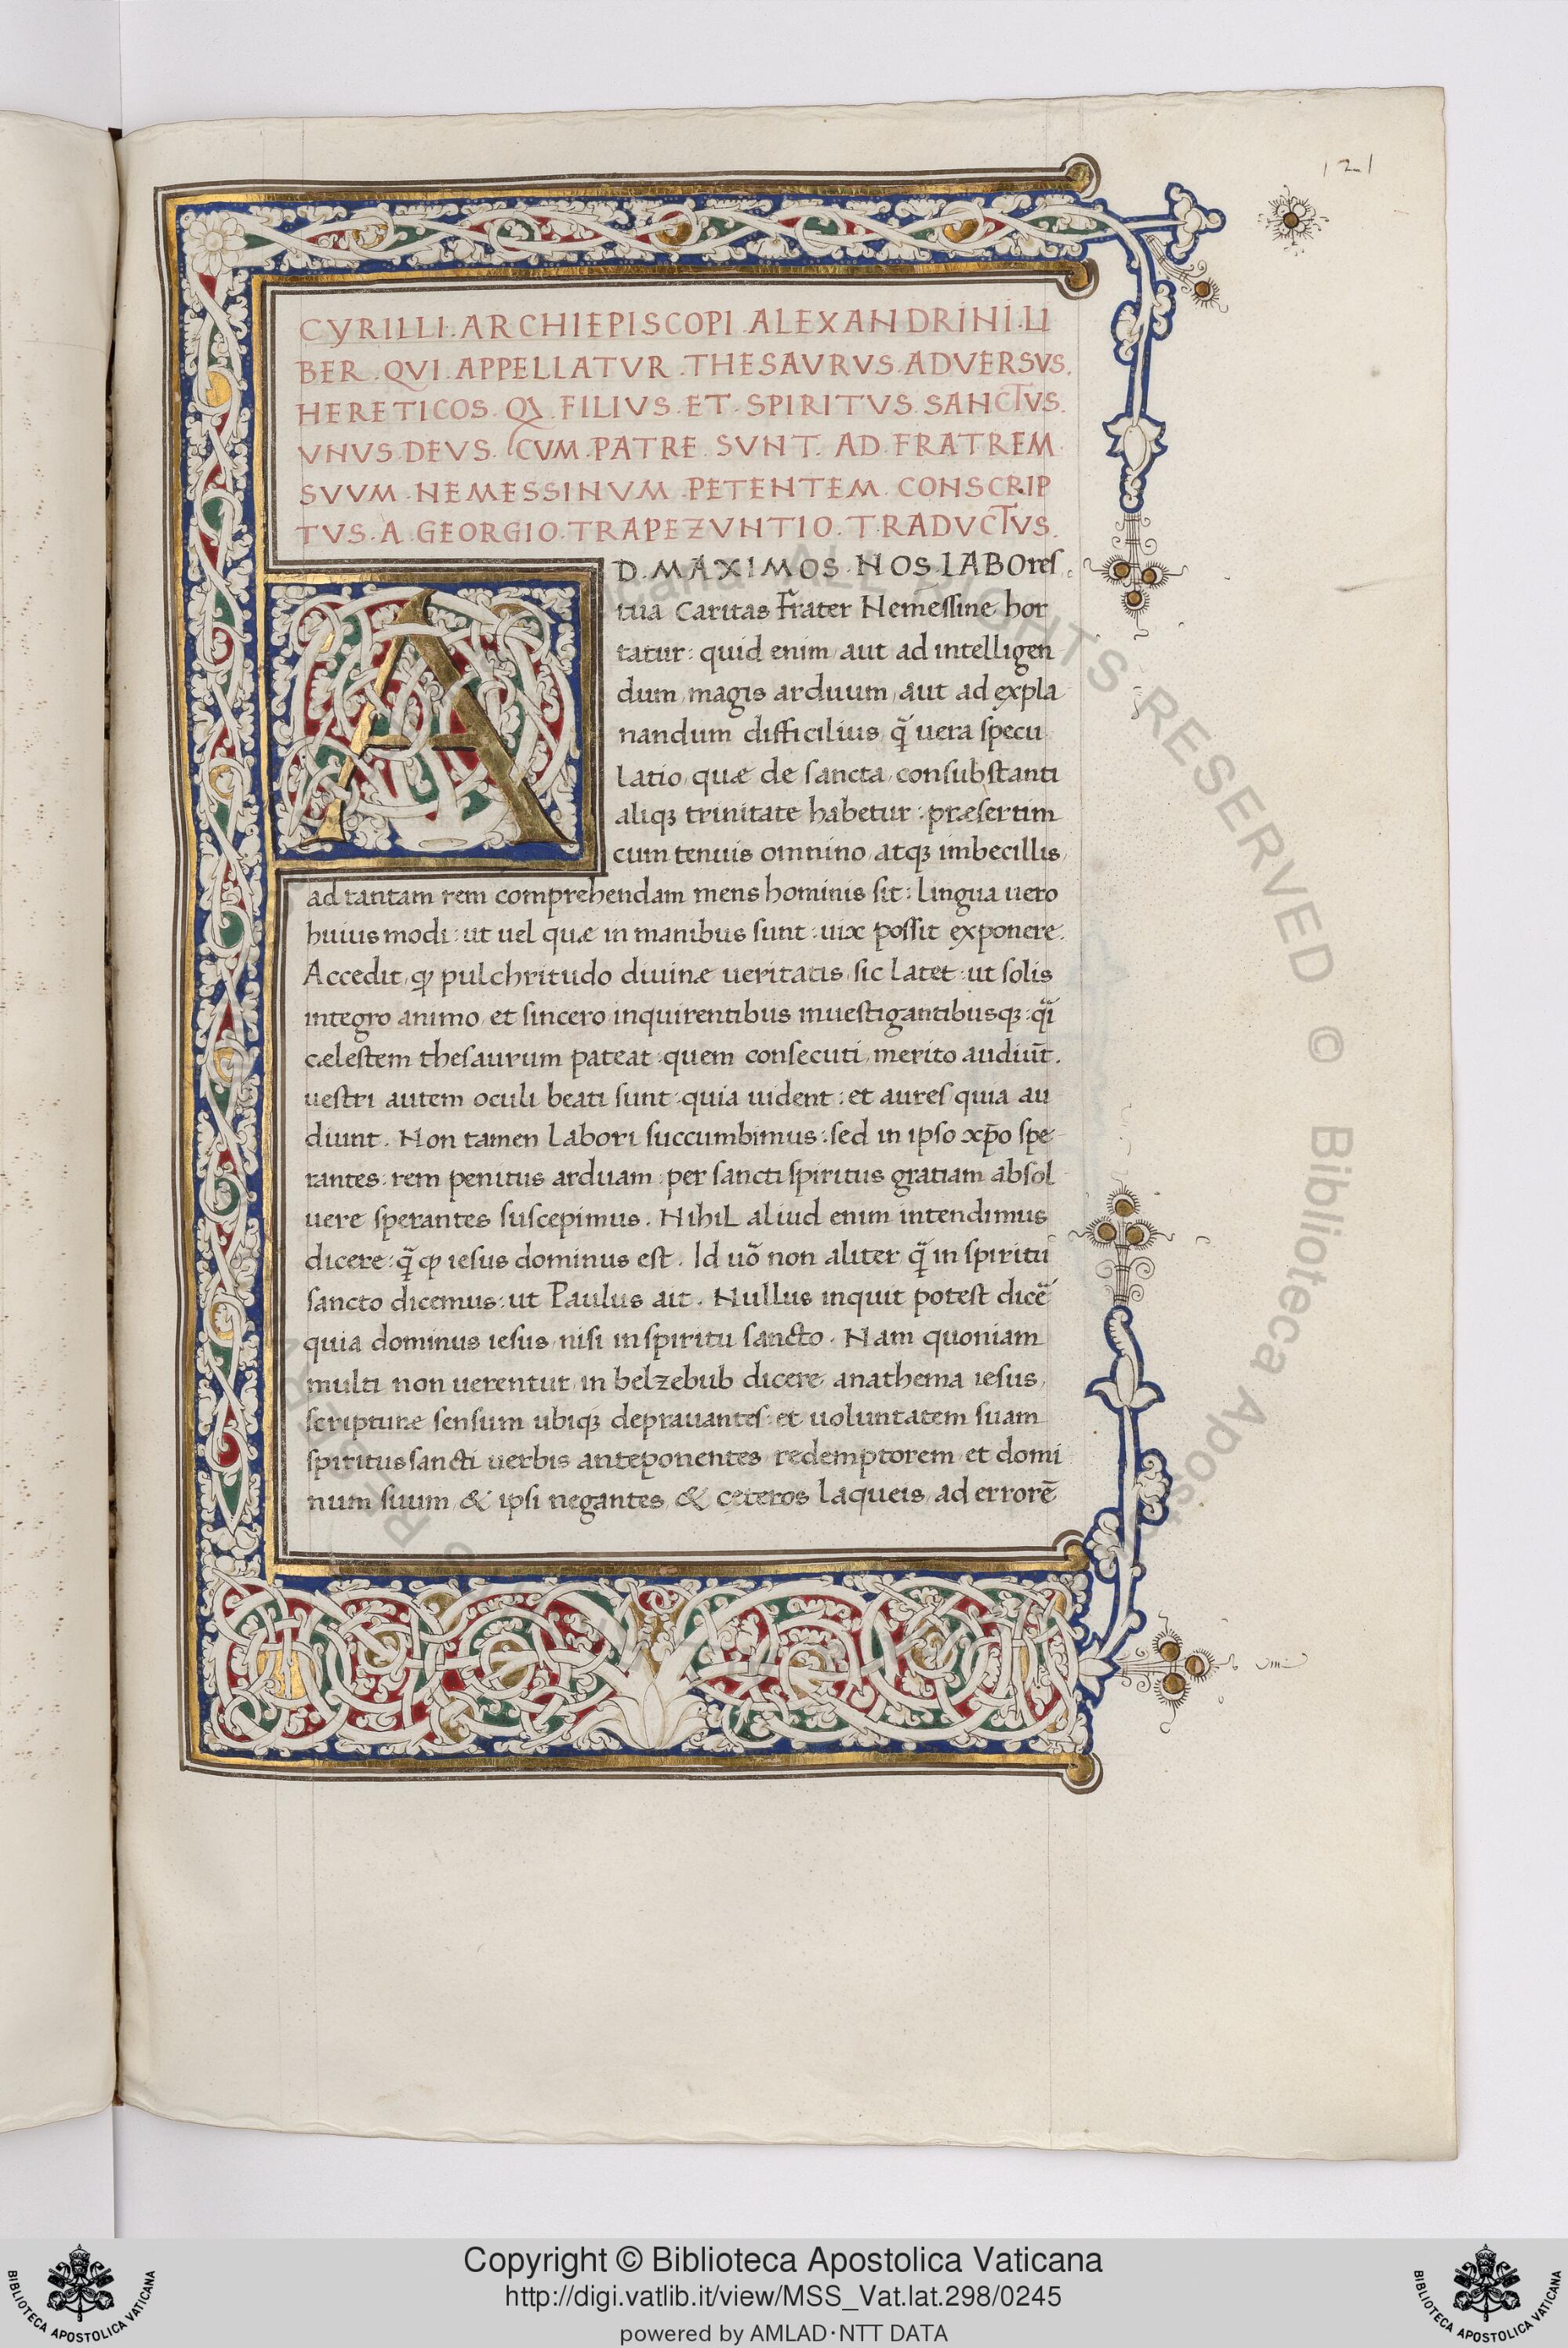 121
CYRILLI. ARCHIEPISCOPI ALEXANDRINI. LI
BER. QVI. APPELLATVR. THESAVRVS. ADVERSVS.
HERETICOS. Qꝫ FILIVS. ET. SPIRITVS. SANCTVS.
VNVS. DEVS. CVM. PATRE. SVNT. AD. FRATREM.
SVVM. NEMESSINVM. PETENTEM. CONSCRIP
TVS. A. GEORGIO. TRAPEZVNTIO. TRADVCTVS.
AD. MAXIMOS. NOS LABOres
tua caritas Frater Nemessine hor
tatur: quid enim aut ad intelligen
dum magis arduum, aut ad expla
nandum difficilius q̃ uera specu
latio, quæ de sancta, consubstanti
aliqꝫ trinitate habetur: præsertim
cum tenuis omnino, atqꝫ imbecillis,
ad tantam rem comprehendam mens hominis sit: lingua uero
huiusmodi: ut uel quæ in manibus sunt: uix possit exponere.
Accedit, ꝙ pulchritudo diuinæ ueritatis, sic latet: ut solis
integro animo, et sincero inquirentibus inuestigantibusqꝫ: q̃i
cælestem thesaurum pateat: quem consecuti, merito audiūt.
uestri autem oculi beati sunt: quia uident: et aures quia au
diunt. Non tamen labori succumbimus: sed in ipso xp̄o spe
rantes: rem penitus arduam: per sancti spiritus gratiam absol
uere sperantes suscepimus. Nihil aliud enim intendimus
dicere: q̃ ꝙ iesus dominus est. Id uõ non aliter q̃ in spiritu
sancto dicemus: ut Paulus ait. Nullus inquit potest dicẽ
quia dominus iesus, nisi in spiritu sancto. Nam quoniam
multi non uerentur, in belzebub dicere anathema iesus,
scripturæ sensum ubiqꝫ deprauantes: et uoluntatem suam
spiritus sancti uerbis anteponentes redemptorem et domi
num suum & ipsi negantes, & ceteros laqueis, ad errorē
ALL RIGHTS RESERVED © Biblioteca Apost
Copyright © Biblioteca Apostolica Vaticana
http://digi.vatlib.it/view/MSS_Vat.lat.298/0245
powered by AMLAD·NTT DATA
BIBLIOTECA APOSTOLICA VATICANA
BIBLIOTECA APOSTOLICA VATICANA